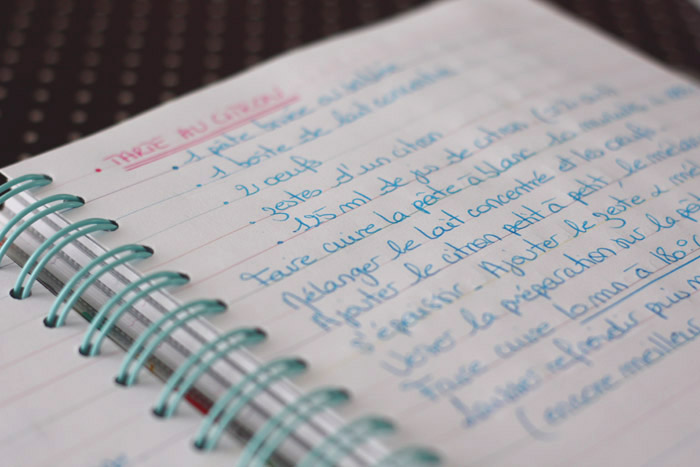 TARTE AU CITRON
1 pâte brisée au
1 boîte de lait concentré
2 œufs
zestes d'un citron
125 ml de jus de citron
Faire cuire la pâte à blanc 10 minutes à
Mélanger le lait concentré et les oeufs.
Ajouter le citron petit à petit, le
s'épaissir. Ajouter le zeste
Verser la préparation sur la
Faire cuire 10 mn à 180°
laisser refroidir puis
(encore meilleur